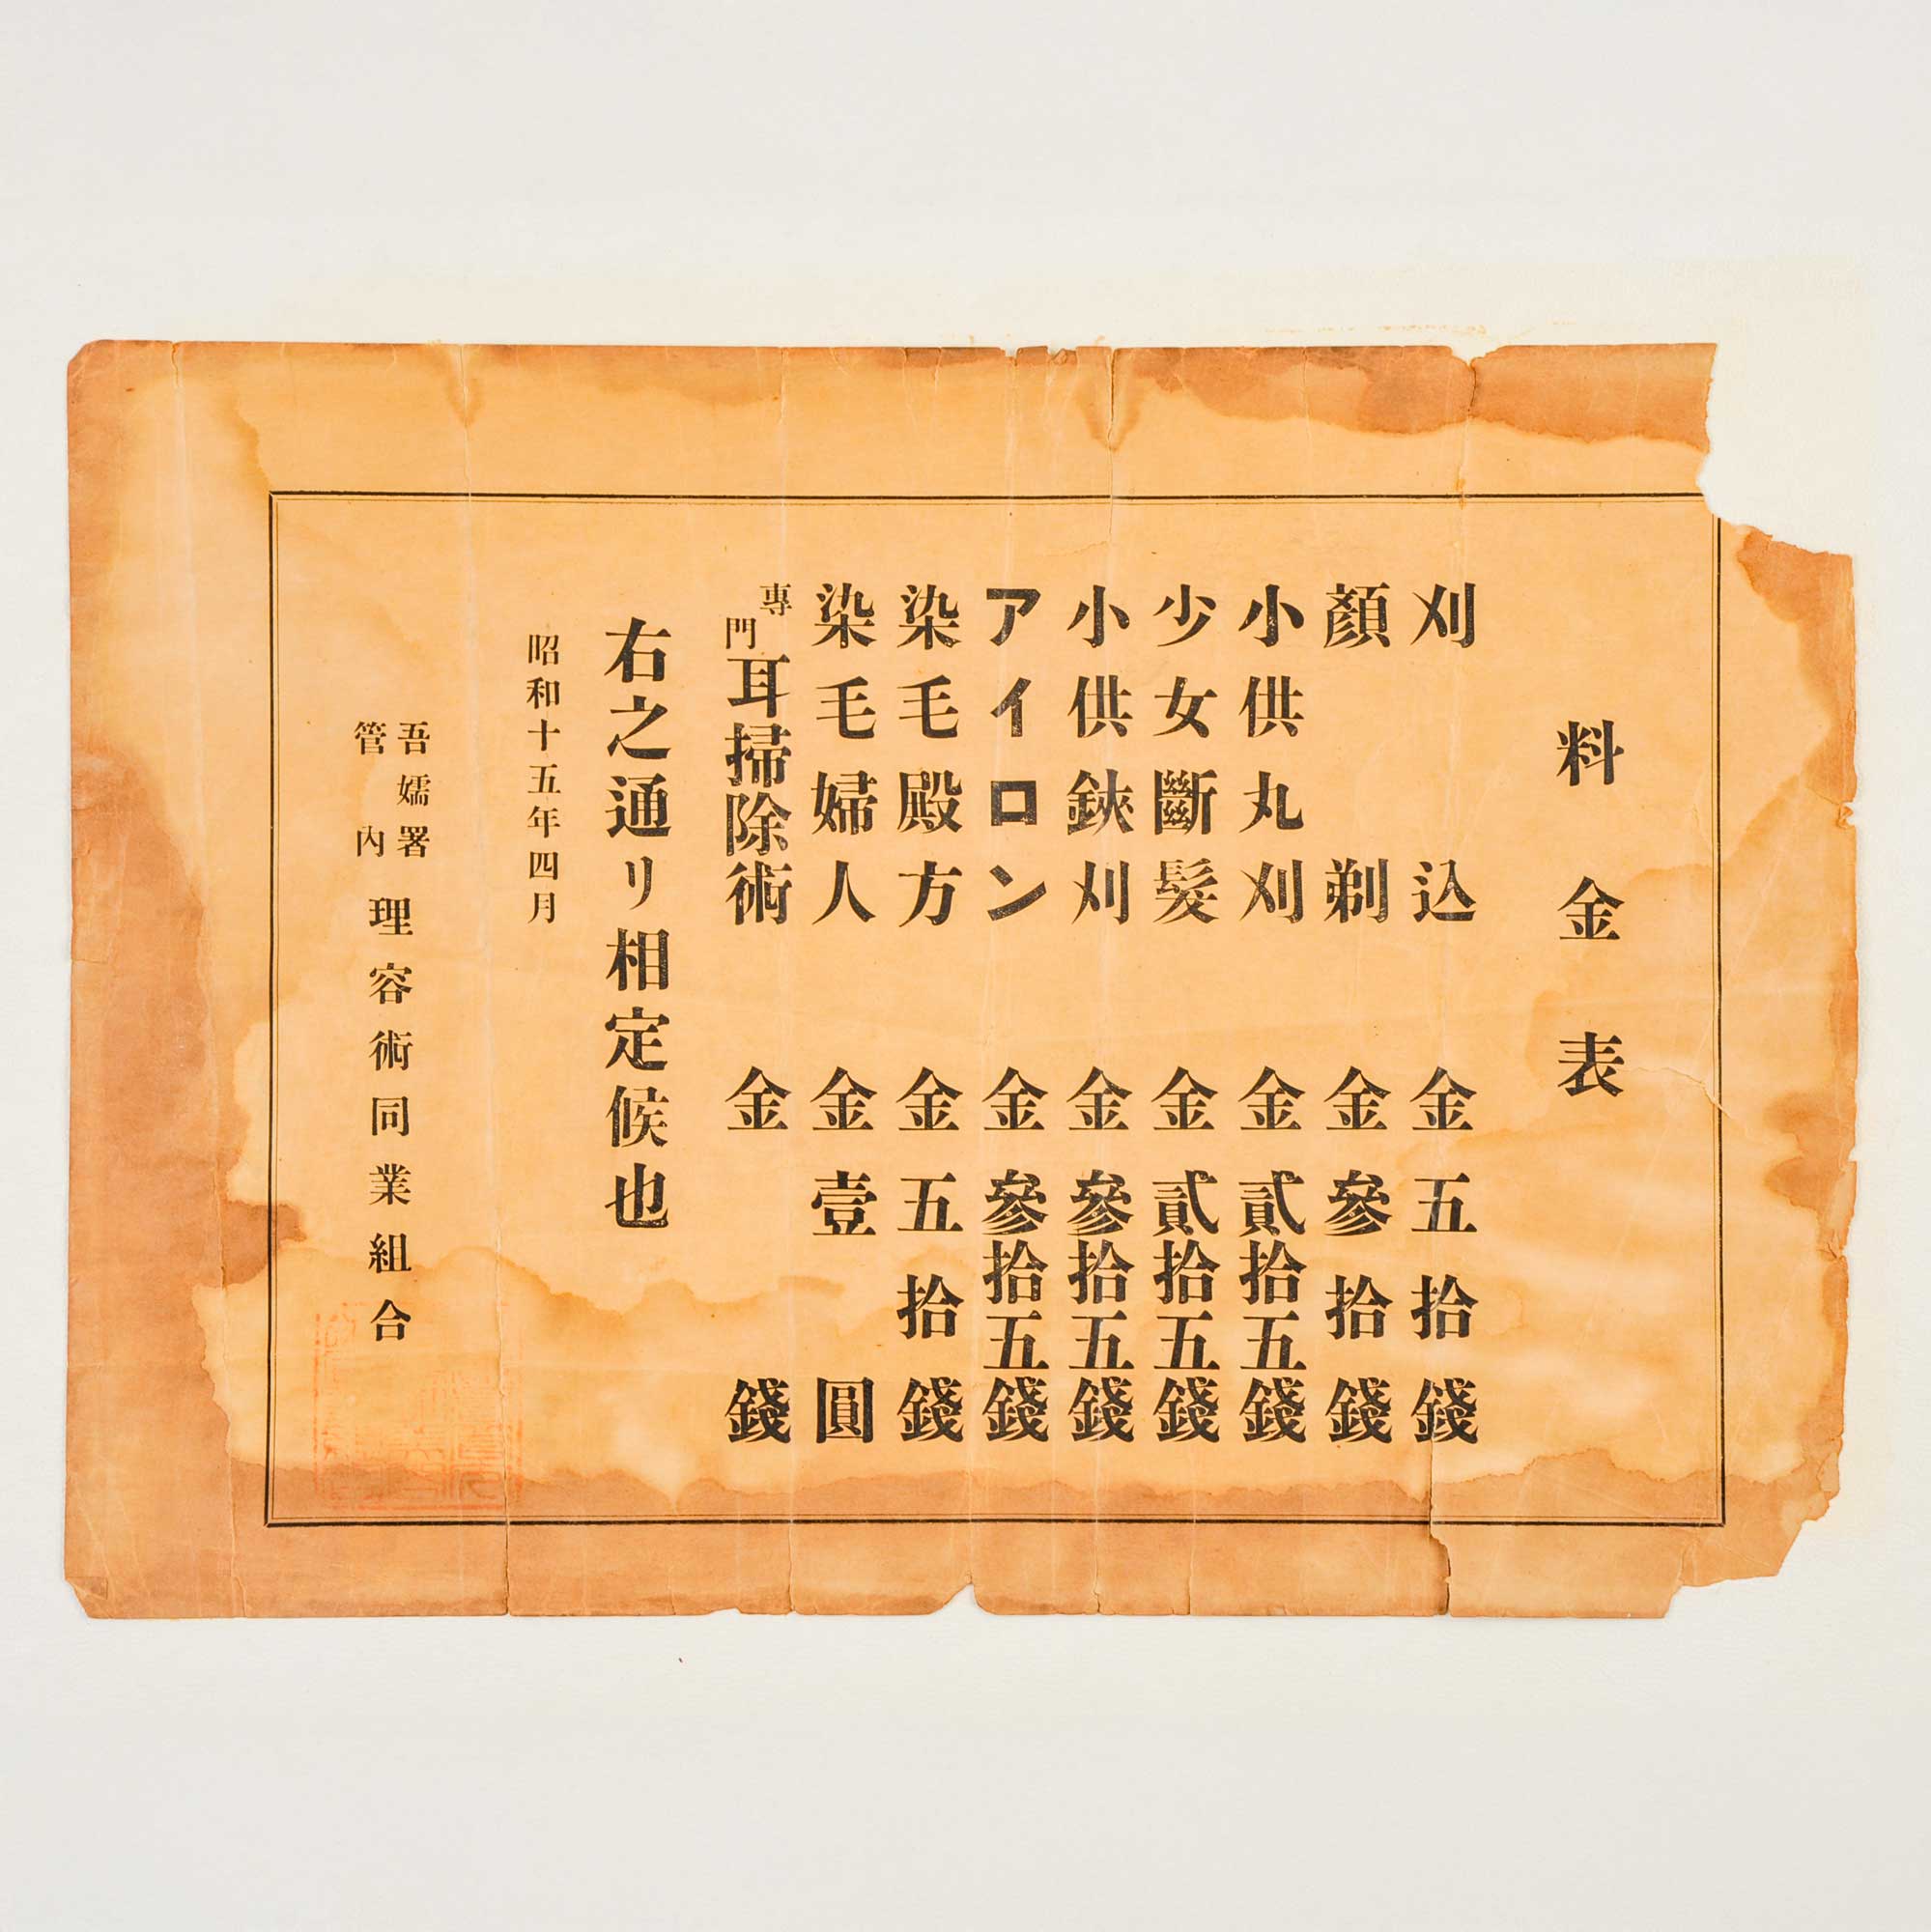 料金表
刈込 金五拾錢
顏剃 金參拾錢
小供丸刈 金貳拾五錢
少女斷髮 金貳拾五錢
小供鋏刈 金參拾五錢
アイロン 金參拾五錢
染毛殿方 金五拾錢
染毛婦人 金壹圓
專門耳掃除術 金 錢
右之通リ相定候也
昭和十五年四月
吾嬬署管內 理容術同業組合